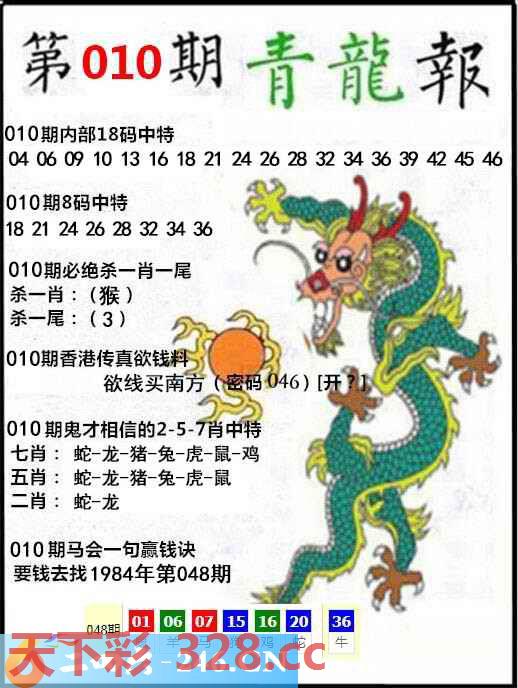 第010期青龍報
010期内部18码中特
04 06 09 10 13 16 18 21 24 26 28 32 34 36 39 42 45 46
010期8码中特
18 21 24 26 28 32 34 36
010期必绝杀一肖一尾
杀一肖：（猴）
杀一尾：（3）
010期香港传真欲钱料
欲线买南方（密码046）[开？]
010期鬼才相信的2-5-7肖中特
七肖： 蛇-龙-猪-兔-虎-鼠-鸡
五肖： 蛇-龙-猪-兔-虎-鼠
二肖： 蛇-龙
010期马会一句赢钱诀
要钱去找1984年第048期
048期 01 06 07 15 16 20 36
羊 马 鸡 蛇 牛
天下彩-328.cc